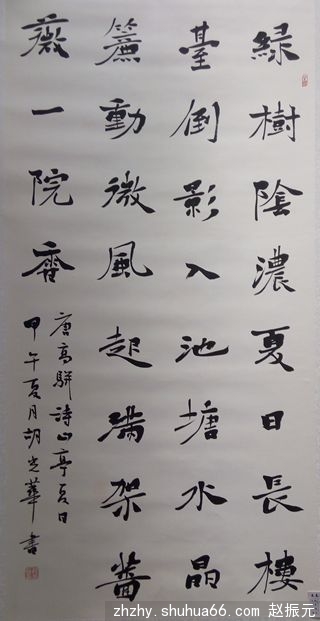 綠樹陰濃夏日長樓
臺倒影入池塘水晶
簾動微風起滿架薔
薇一院香
唐高駢詩山亭夏日
甲午夏月胡光華書
zhzhy.shuhua66.com 赵振元